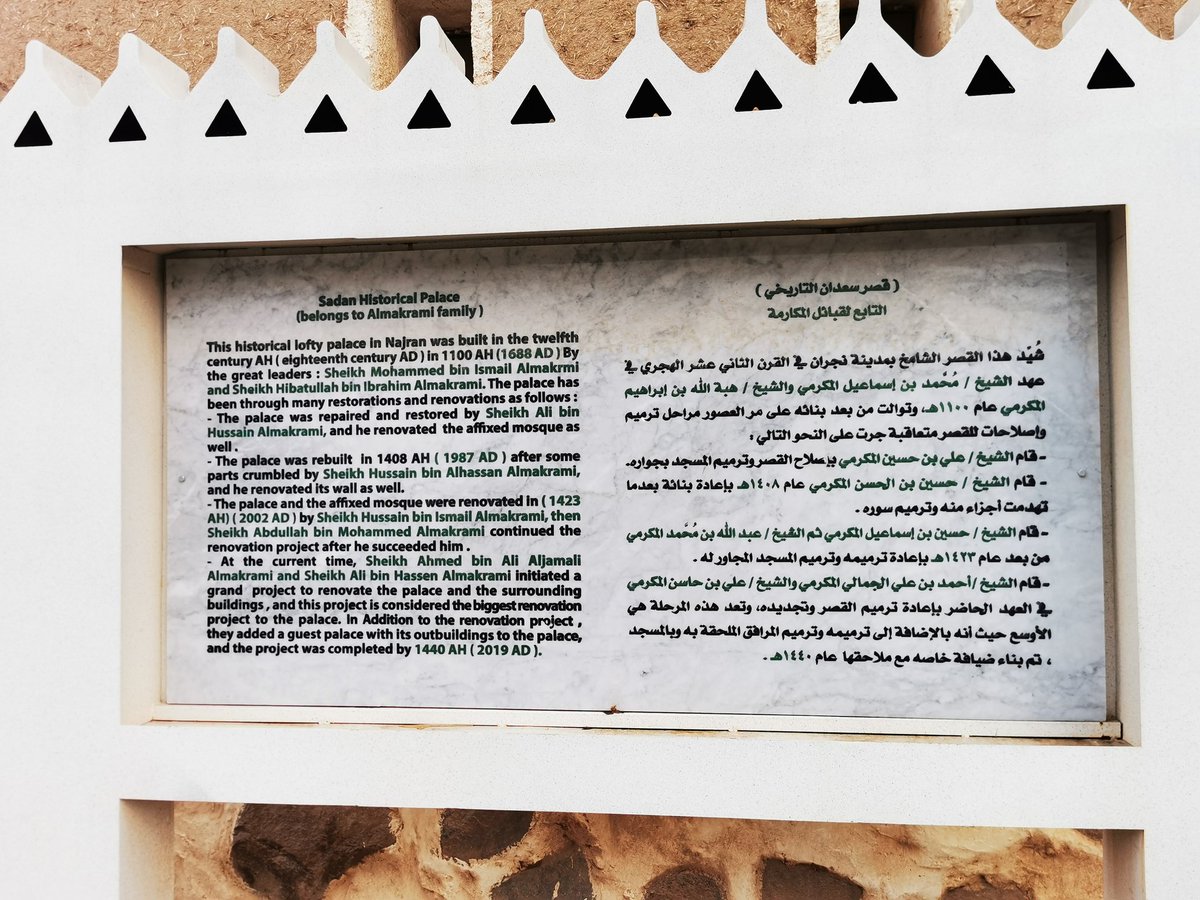 Sadan Historical Palace
(belongs to Almakrami family )
This historical lofty palace in Najran was built in the twelfth
century AH ( eighteenth century AD ) in 1100 AH (1688 AD ) By
the great leaders : Sheikh Mohammed bin Ismail Almakrmi
and Sheikh Hibatullah bin Ibrahim Almakrami. The palace has
been through many restorations and renovations as follows :
- The palace was repaired and restored by Sheikh Ali bin
Hussain Almakrami, and he renovated the affixed mosque as
well .
- The palace was rebuilt in 1408 AH ( 1987 AD ) after some
parts crumbled by Sheikh Hussain bin Alhassan Almakrami,
and he renovated its wall as well.
- The palace and the affixed mosque were renovated in ( 1423
AH) ( 2002 AD ) by Sheikh Hussain bin Ismail Almakrami, then
Sheikh Abdullah bin Mohammed Almakrami continued the
renovation project after he succeeded him .
- At the current time, Sheikh Ahmed bin Ali Aljamali
Almakrami and Sheikh Ali bin Hassen Almakrami initiated a
grand project to renovate the palace and the surrounding
buildings , and this project is considered the biggest renovation
project to the palace. In Addition to the renovation project ,
they added a guest palace with its outbuildings to the palace,
and the project was completed by 1440 AH ( 2019 AD ).
( قصر سعدان التاريخي )
التابع لقبائل المكارمة
شُيّد هذا القصر الشامخ بمدينة نجران في القرن الثاني عشر الهجري في
عهد الشيخ / مُحَّمد بن إسماعيل المكرمي والشيخ / هبة الله بن إبراهيم
المكرمي عام ١١٠٠هـ، وتوالت من بعد بنائه على مر العصور مراحل ترميم
وإصلاحات للقصر متعاقبة جرت على النحو التالي :
- قام الشيخ / علي بن حسين المكرمي بإصلاح القصر وترميم المسجد بجواره.
- قام الشيخ / حسين بن الحسن المكرمي عام ١٤٠٨هـ بإعادة بنائة بعدما
تهدمت أجزاء منه وترميم سوره .
- قام الشيخ / حسين بن إسماعيل المكرمي ثم الشيخ / عبد الله بن مُحَّمد المكرمي
من بعد عام ١٤٢٣هـ بإعادة ترميمه وترميم المسجد المجاور له .
- قام الشيخ /أحمد بن علي الجمالي المكرمي والشيخ / علي بن حاسن المكرمي
في العهد الحاضر بإعادة ترميم القصر وتجديده، وتعد هذه المرحلة هي
الأوسع حيث أنه بالإضافة إلى ترميمه وترميم المرافق الملحقة به وبالمسجد
، تم بناء ضيافة خاصه مع ملاحقها عام ١٤٤٠هـ .